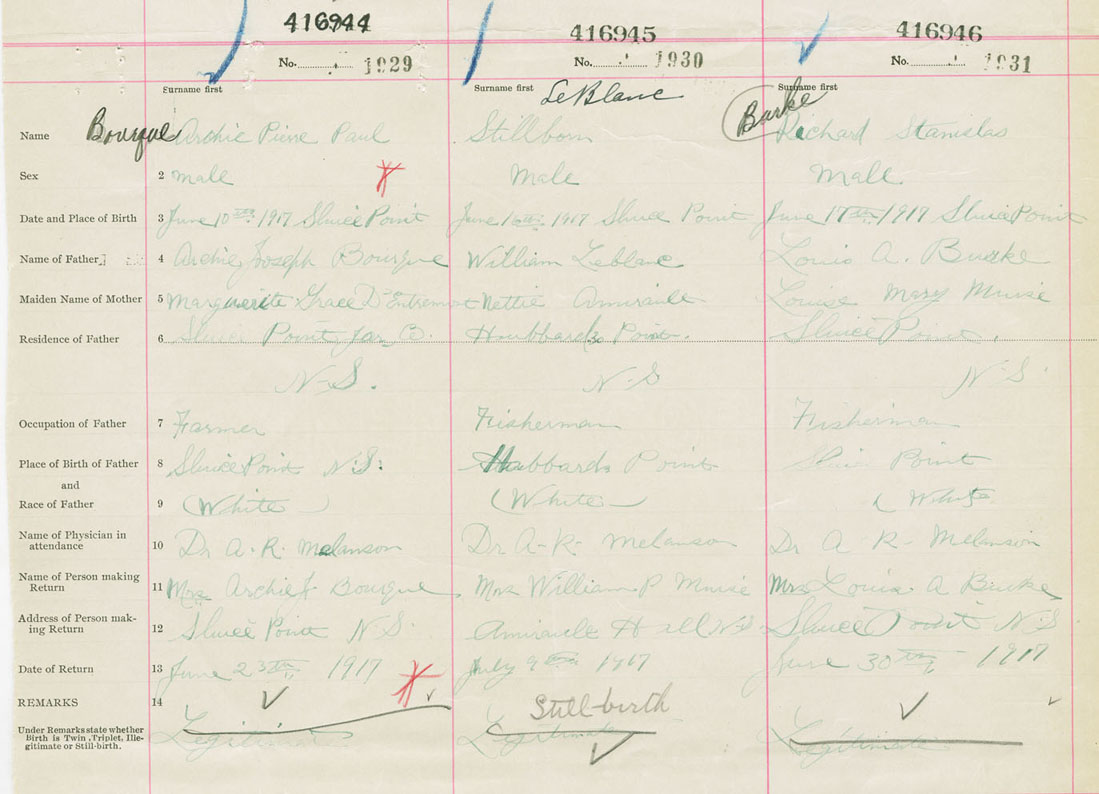 416944 416945 416946
No. 1929 No. 1930 No. 1931
Surname first Surname first Surname first
LeBlanc Burke
Name Bourque Archie Pierre Paul Stillborn Richard Stanislas
Sex 2 male Male Male
Date and Place of Birth 3 June 10th 1917 Sluice Point June 16th 1917 Sluice Point June 17th 1917 Sluice Point
Name of Father 4 Archie Joseph Bourque William Leblanc Louis A. Burke
Maiden Name of Mother 5 Marguerite Grace D'Entremont Nettie Amirault Louise Mary Muise
Residence of Father 6 Sluice Point Hubbards Point. Sluice Point.
N.S. N.S N.S.
Occupation of Father 7 Farmer Fisherman Fisherman
Place of Birth of Father 8 Sluice Point N.S. Hubbards Point Sluice Point
and
Race of Father 9 (White) (White) (White
Name of Physician in
attendance 10 Dr A. R. Melanson Dr A. R. Melanson Dr A R. Melanson
Name of Person making
Return 11 Mrs Archie J Bourque Mrs William P Muise Mrs Louis A Burke
Address of Person mak-
ing Return 12 Sluice Point N.S. Amirault Hill N.S Sluice Point N.S
Date of Return 13 June 23rd 1917 July 9th 1917 June 30th 1917
REMARKS 14 Still-birth
Under Remarks state whether
Birth is Twin, Triplet, Ille-
gitimate or Still-birth. Legitimate Legitimate Legitimate